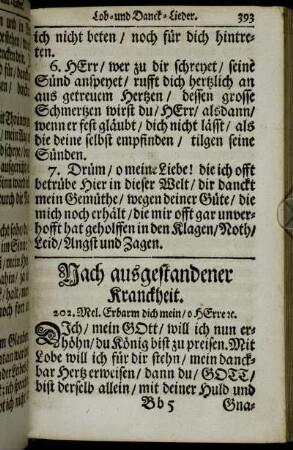 Lob- und Danck-Lieder. 393
ich nicht beten / noch für dich hintre-
ten.
6. HErr / wer zu dir schreyet / seine
Sünd anspeyet / rufft dich hertzlich an
aus getreuem Hertzen / dessen grosse
Schmertzen wirst du / HErr / alsdann /
wenn er fest gläubt / dich nicht lässt / als
die deine selbst empfinden / tilgen seine
Sünden.
7. Drüm / o meine Liebe! die ich offt
betrübe Hier in dieser Welt / dir danckt
mein Gemüthe / wegen deiner Güte / die
mich noch erhält / die mir offt gar unver-
hofft hat geholffen in den Klagen / Noth /
Leid / Angst und Zagen.
Nach ausgestandener
Kranckheit.
202. Mel. Erbarm dich mein / o HErre ꝛc.
DIch / mein GOtt / will ich nun er-
höhn / du König bist zu preisen. Mit
Lobe will ich für dir stehn / mein danck-
bar Hertz erweisen / dann du / GOTT /
bist derselb allein / mit deiner Huld und
Bb 5 Gna-